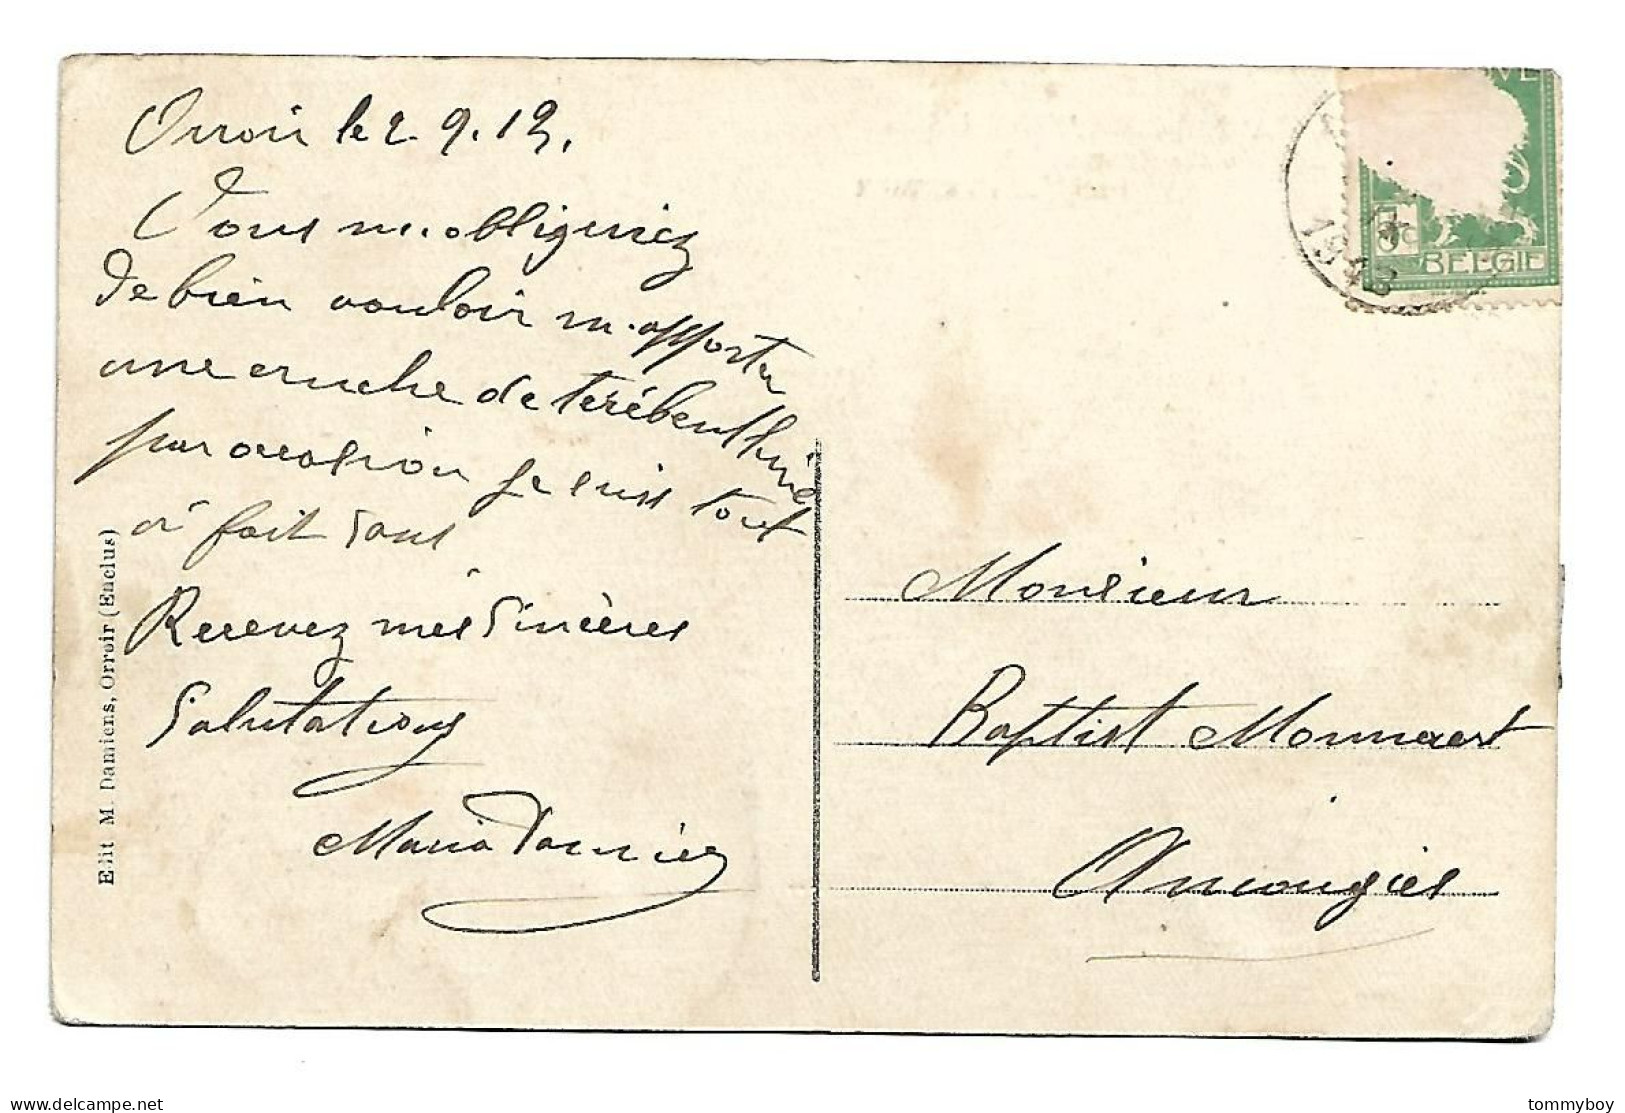 Orroir le 2. 9. 12.
Vous m'obligeriez
de bien vouloir m'apporter
une cruche de térébenthine
par occasion je suis tout
à fait sans
Recevez mes Sincères
Salutations
Maria Damiens
Edit M. Damiens, Orroir (Enclus)
5c
BELGIE
Monsieur
Baptist Monnaert
Anvongies
delcampe.net
tommyboy